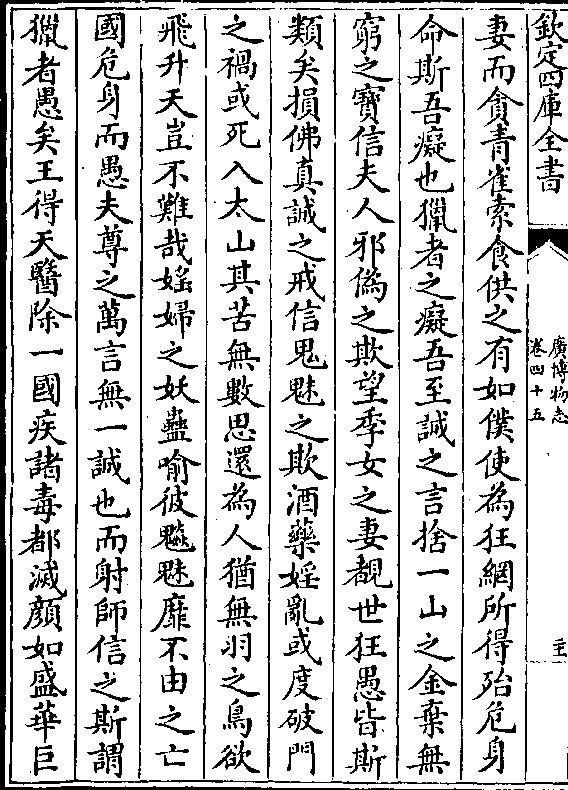 欽定四庫全書
廣博物志
卷四十五
妻而貪青雀索食供之有如僕使為狂網所得殆危身
命斯吾癡也獵者之癡吾至誠之言捨一山之金棄無
窮之寶信夫人邪偽之欺望季女之妻覩世狂愚皆斯
類矣損佛真誠之戒信鬼魅之欺酒藥婬亂或度破門
之禍或死入太山其苦無數思還為人猶無羽之鳥欲
飛升天豈不難哉婬婦之妖蠱喻彼魑魅靡不由之亡
國危身而愚夫尊之萬言無一誠也而射師信之斯謂
獵者愚矣王得天醫除一國疾諸毒都滅顔如盛華巨